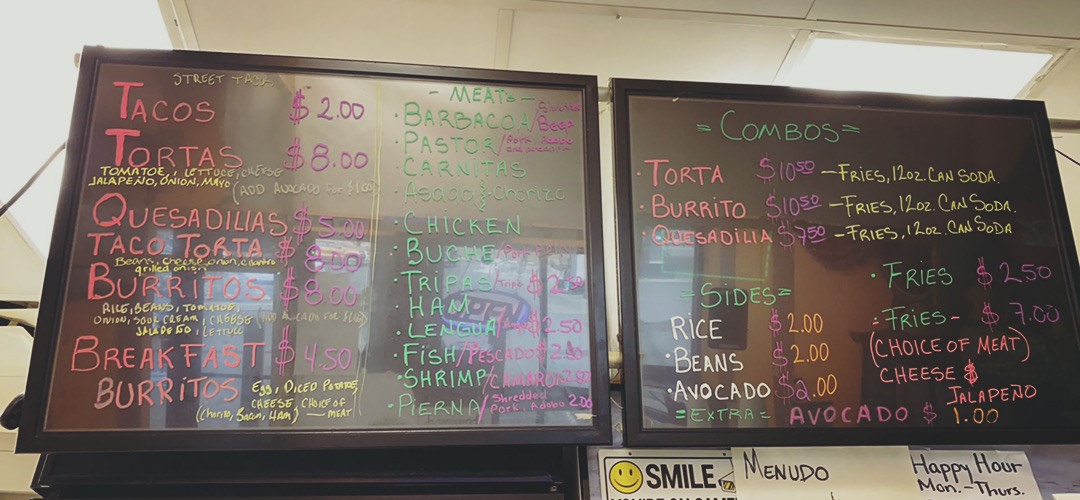 STREET
TACOS $2.00
TORTAS $8.00
TOMATOE, LETTUCE, CHEESE
JALAPEÑO, ONION, MAYO (ADD AVACADO FOR $1.00)
QUESADILLAS $5.00
TACO TORTA $8.00
Beans, Cheese, onion, cilantro
grilled onion
BURRITOS $8.00
RICE, BEANS, TOMATOE,
ONION, SOUR CREAM, CHEESE
JALAPEÑO, LETTUCE
BREAKFAST $4.50
BURRITOS
Egg, DICED POTATOE,
CHEESE, CHOICE OF
(Chorizo, Bacon, HAM) — MEAT
- MEATS -
• BARBACOA/ Beef
• PASTOR/ Pork, Adobo
CARNITAS
Asada & Chorizo
• CHICKEN
• BUCHE/
• TRIPAS/ Tripe $2.50
HAM
• LENGUA/ $2.50
• FISH/PESCADO $2.50
• SHRIMP/CAMARON 2.50
• PIERNA/ Shredded Pork, Adobo 2.00
= COMBOS =
• TORTA $10.50 — FRIES, 12oz. CAN SODA.
• BURRITO $10.50 — FRIES, 12oz. CAN SODA.
• QUESADILIA $7.50 — FRIES, 12oz. CAN SODA
= SIDES =
RICE $2.00
• BEANS $2.00
• AVOCADO $2.00
• FRIES $2.50
• FRIES - $7.00
(CHOICE OF MEAT)
CHEESE &
JALAPEÑO
= EXTRA = AVOCADO $1.00
SMILE
MENUDO
Happy Hour
Mon.-Thurs.